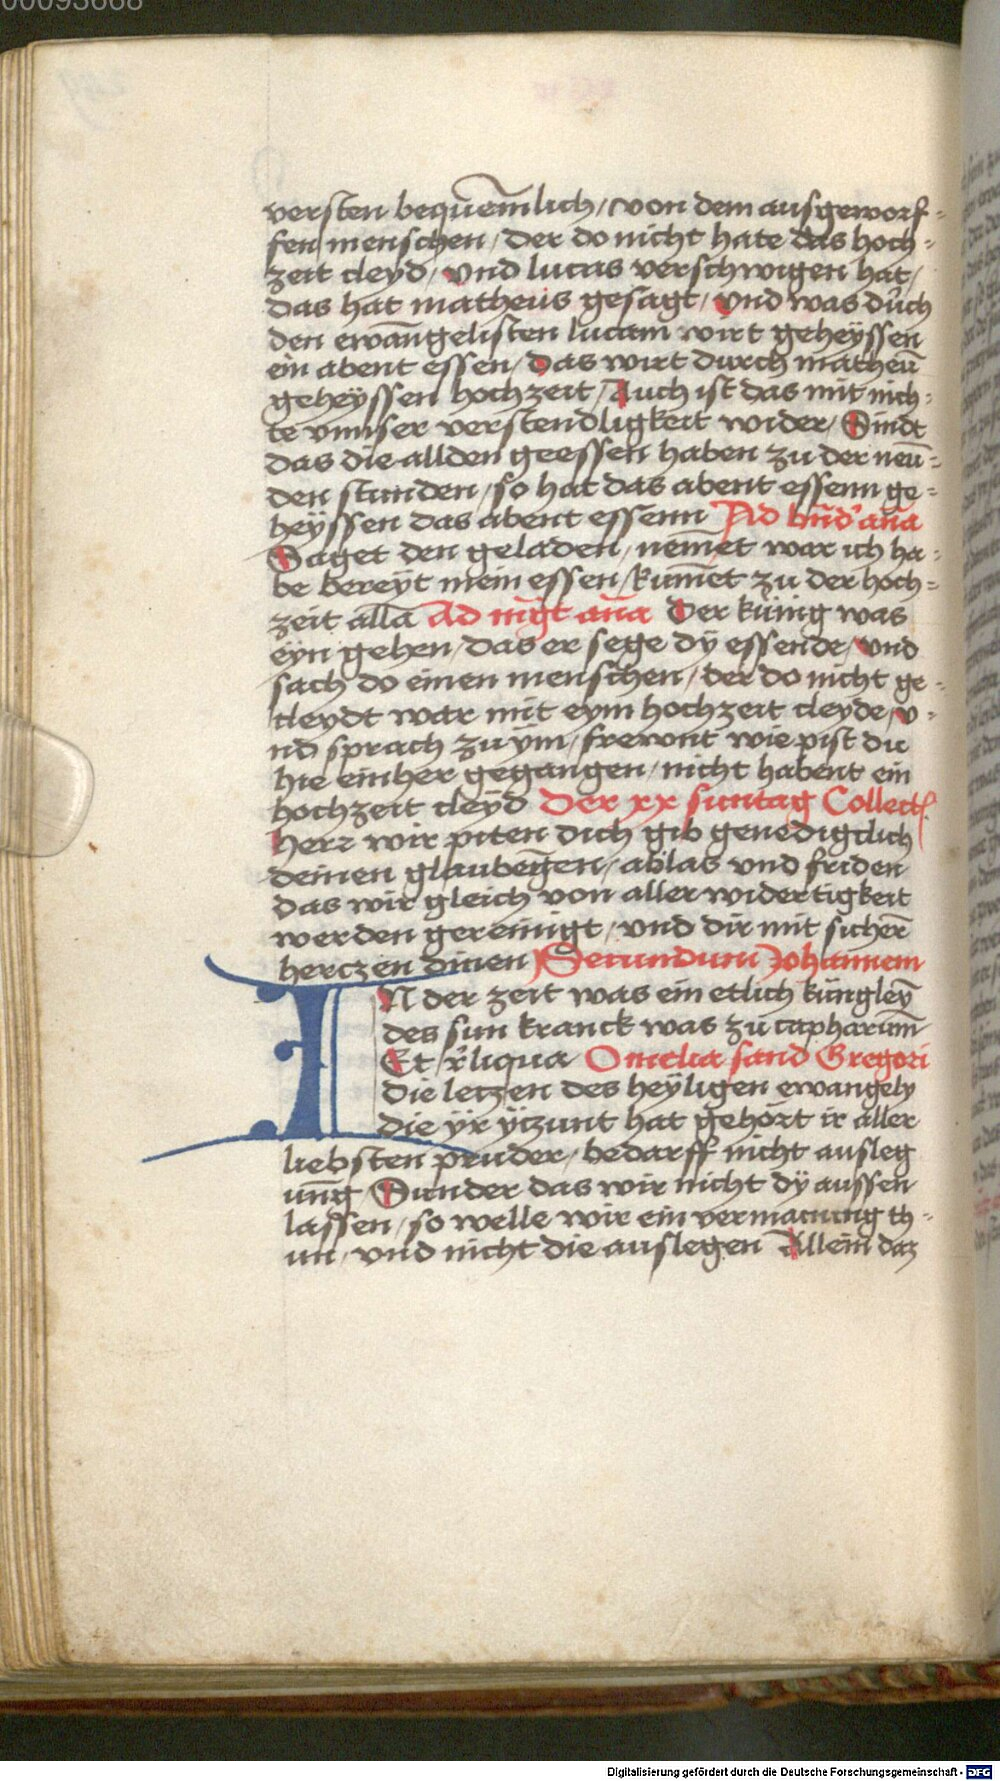 00093668
versten bequem̄lich / von dem ausgeworf-
fen menschen / der do nicht hate das hoch-
zeit cleyd / vnd lucas verschwigen hat /
das hat matheus gesagt / vnd was durch
den ewāngelisten lucam wirt geheÿssen
ein abent essen / das wirt durch matheū
geheÿssen hochzeit / Auch ist das mit nich-
te vnnser verstendligkeit wider / Sindt
das die allden geessen haben zu der neū-
den stunden / so hat das abent essenn ge-
heÿssen das abent essenn Ad bn̄d' ān̄a
Saget den geladen / nem̄et war ich ha-
be bereÿt mein essen / kum̄et zu der hoch-
zeit all̄a Ad mgt̄ an̄a Der kūnig was
eÿn gehen / das er sege dÿ essende / vnd
sach do einen menschen / der do nicht ge-
cleydt war mit eym hochzeit cleyde / v-
nd sprach zu ÿm / frewnt wie pist du
hie einher gegangen / nicht habent ein
hochzeit cleÿd Der xx suntag Collect
Herr wir piten dich gib genedigclich
deinen glaubegen / ablas vnd friden
das wir gleich von aller widertigkeit
werden gereinigt / vnd dir mit sicherr̄
herczen dinen Secundum Johannem
IN der zeit was ein etlich kūngleÿ
des sun kranck was zu capharum̄
Et r̄liqua Omelia sand Gregori
Die letzen des heÿligen ewangely
die ÿr ÿtzunt hat gehort ir aller
liebsten pruder / bedarff nicht ausleg
un̄g Sunder das wir nicht dÿ aussen
lassen / so welle wir ein vermanung th-
un / vnd nicht die auslegen Allein daz
Digitalisierung gefördert durch die Deutsche Forschungsgemeinschaft - DFG